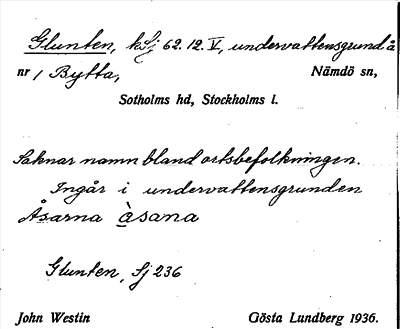 Glunten, kSj 62.12.V, undervattensgrund å
nr 1 Bytta, Nämdö sn,
Sotholms hd, Stockholms l.
Saknar namn bland ortsbefolkningen.
Ingår i undervattensgrunden
Åsarna àsana
Glunten, Sj 236
John Westin Gösta Lundberg 1936.